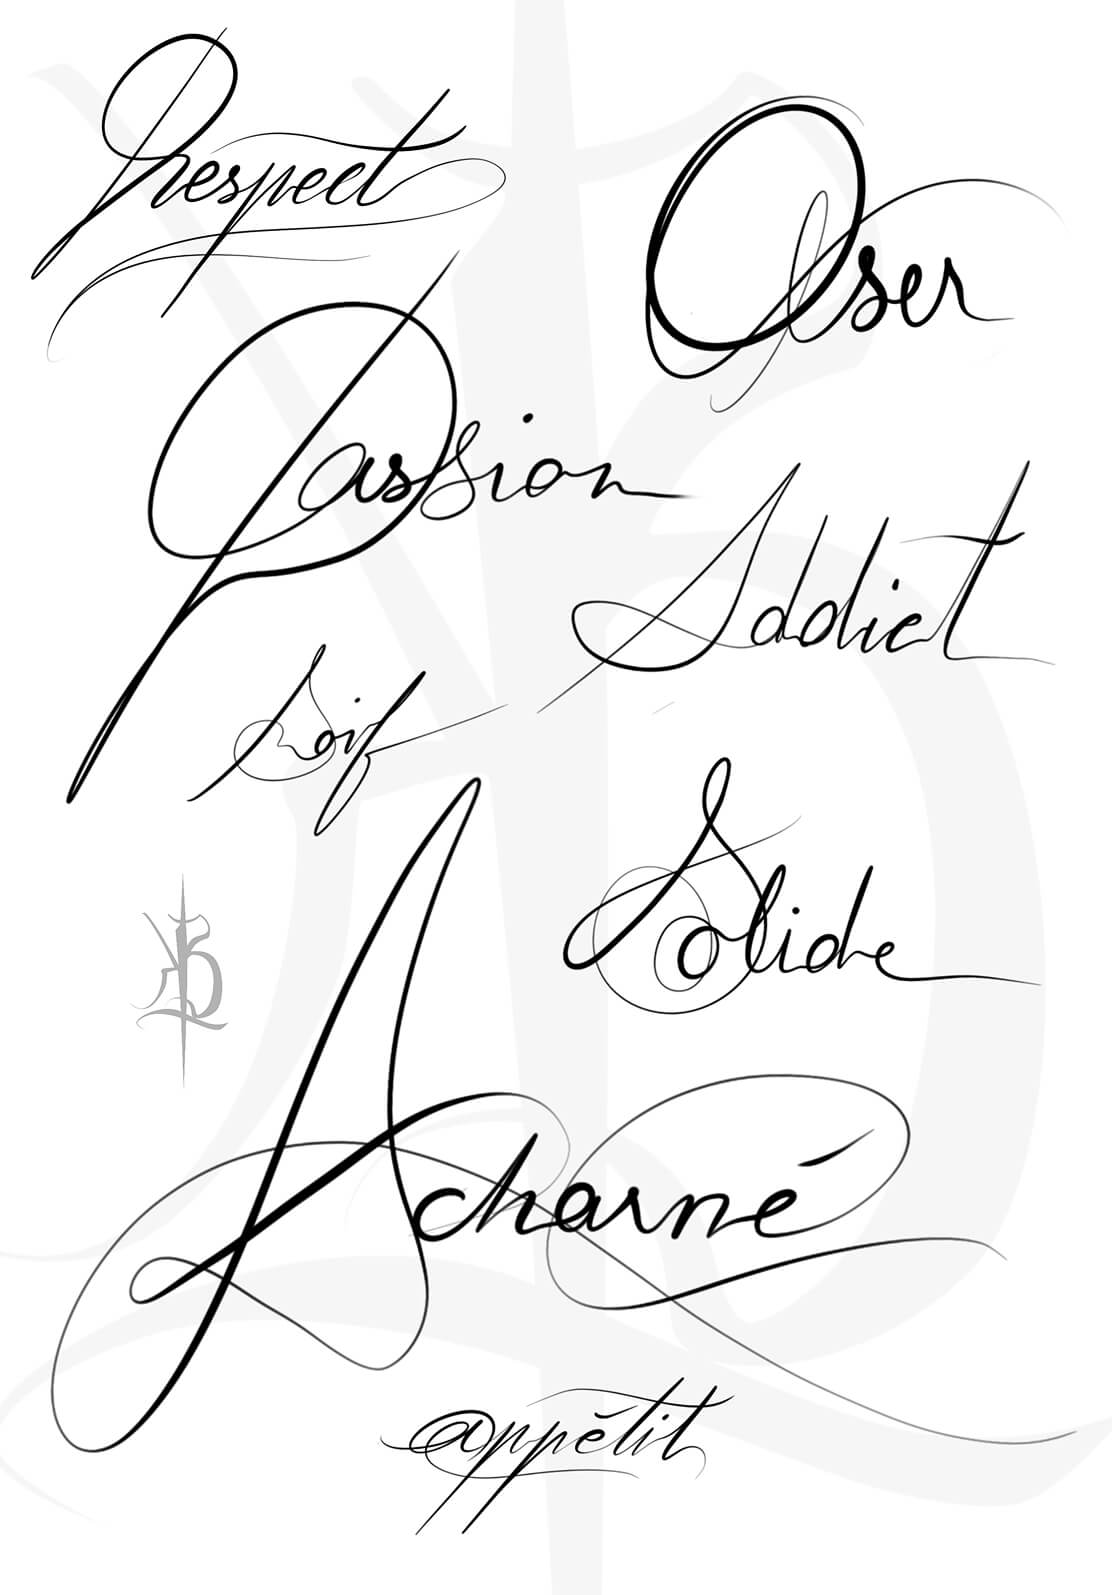 Respect
Oser
Passion
Addict
Soif
Solide
Acharné
appétit